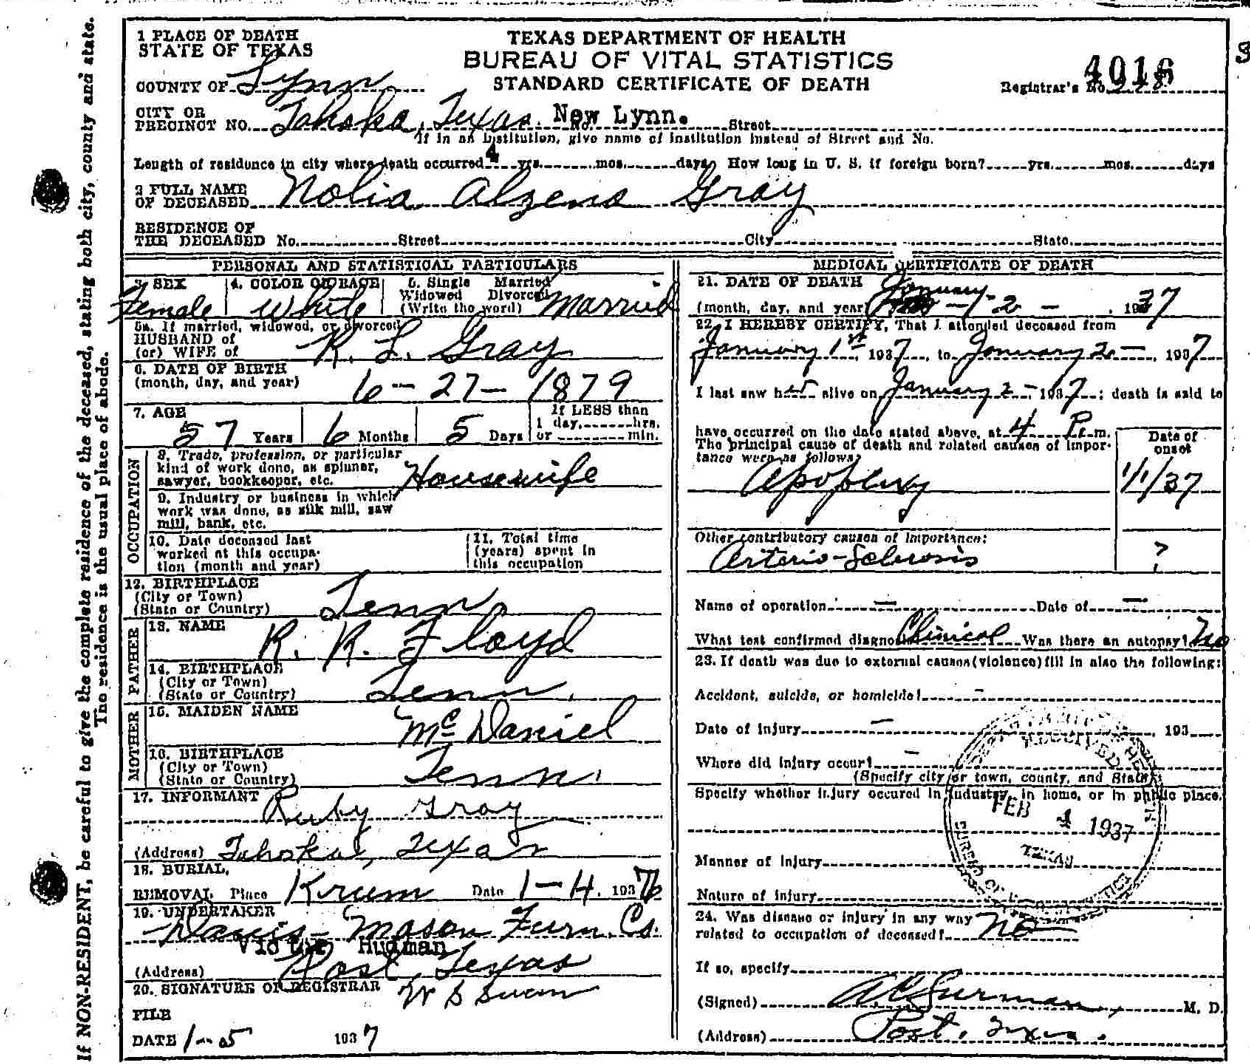 If NON-RESIDENT, be careful to give the complete residence of the deceased, stating both city, county and state.
The residence is the usual place of abode.
1 PLACE OF DEATH
STATE OF TEXAS
TEXAS DEPARTMENT OF HEALTH
BUREAU OF VITAL STATISTICS
STANDARD CERTIFICATE OF DEATH
COUNTY OF Lynn
Registrar's No. 4016
CITY OR
PRECINCT NO. Tahoka, Texas. No. New Lynn. Street
If in an Institution, give name of institution instead of Street and No.
Length of residence in city where death occurred 4 yrs. mos. days How long in U. S. if foreign born? yrs. mos. days
2 FULL NAME
OF DECEASED Nolia Alzena Gray
RESIDENCE OF
THE DECEASED No. Street City State
PERSONAL AND STATISTICAL PARTICULARS
3. SEX Female
4. COLOR OR RACE White
5. Single Married
Widowed Divorced
(Write the word) Married
5a. If married, widowed, or divorced
HUSBAND OF
(or) WIFE of R. L. Gray
6. DATE OF BIRTH
(month, day, and year) 6-27-1879
7. AGE
57 Years 6 Months 5 Days
If LESS than
1 day, hrs.
or min.
OCCUPATION
8. Trade, profession, or particular
kind of work done, as spinner,
sawyer, bookkeeper, etc. Housewife
9. Industry or business in which
work was done, as silk mill, saw
mill, bank, etc.
10. Date deceased last
worked at this occupa-
tion (month and year)
11. Total time
(years) spent in
this occupation
12. BIRTHPLACE
(City or Town)
(State or Country) Tenn,
FATHER
13. NAME R. R. Floyd
14. BIRTHPLACE
(City or Town)
(State or Country) Tenn.
MOTHER
15. MAIDEN NAME McDaniel
16. BIRTHPLACE
(City or Town)
(State or Country) Tenn.
17. INFORMANT Ruby Gray
(Address) Tahoka, Texas
18. BURIAL,
REMOVAL Place Krum Date 1-4. 1937
19. UNDERTAKER
Davis-Mason Furn. Co.
Victor Hudman
(Address) Post, Texas
20. SIGNATURE OF REGISTRAR W S Swan
FILE
DATE 1-5 1937
MEDICAL CERTIFICATE OF DEATH
21. DATE OF DEATH
(month, day, and year) January -2- , 1937
22. I HEREBY CERTIFY, That I attended deceased from
January 1st 1937, to January 2-, 1937
I last saw her alive on January 2- 1937; death is said to
have occurred on the date stated above, at 4 P.m.
The principal cause of death and related causes of impor-
tance were as follows:
Date of
onset
Apoplexy 1/1/37
Other contributory causes of importance:
Arterio-Sclerosis ?
Name of operation — Date of —
What test confirmed diagnosis Clinical Was there an autopsy? No
23. If death was due to external causes (violence) fill in also the following:
Accident, suicide, or homicide? -
Date of injury — 193
Where did injury occur? -
(Specify city or town, county, and State)
Specify whether injury occured in industry, in home, or in public place.
RECEIVED
FEB 4 1937
TEXAS
Manner of injury
Nature of injury
24. Was disease or injury in any way
related to occupation of deceased? No
If so, specify
(Signed) A. C. Surman, M. D.
(Address) Post, Texas.